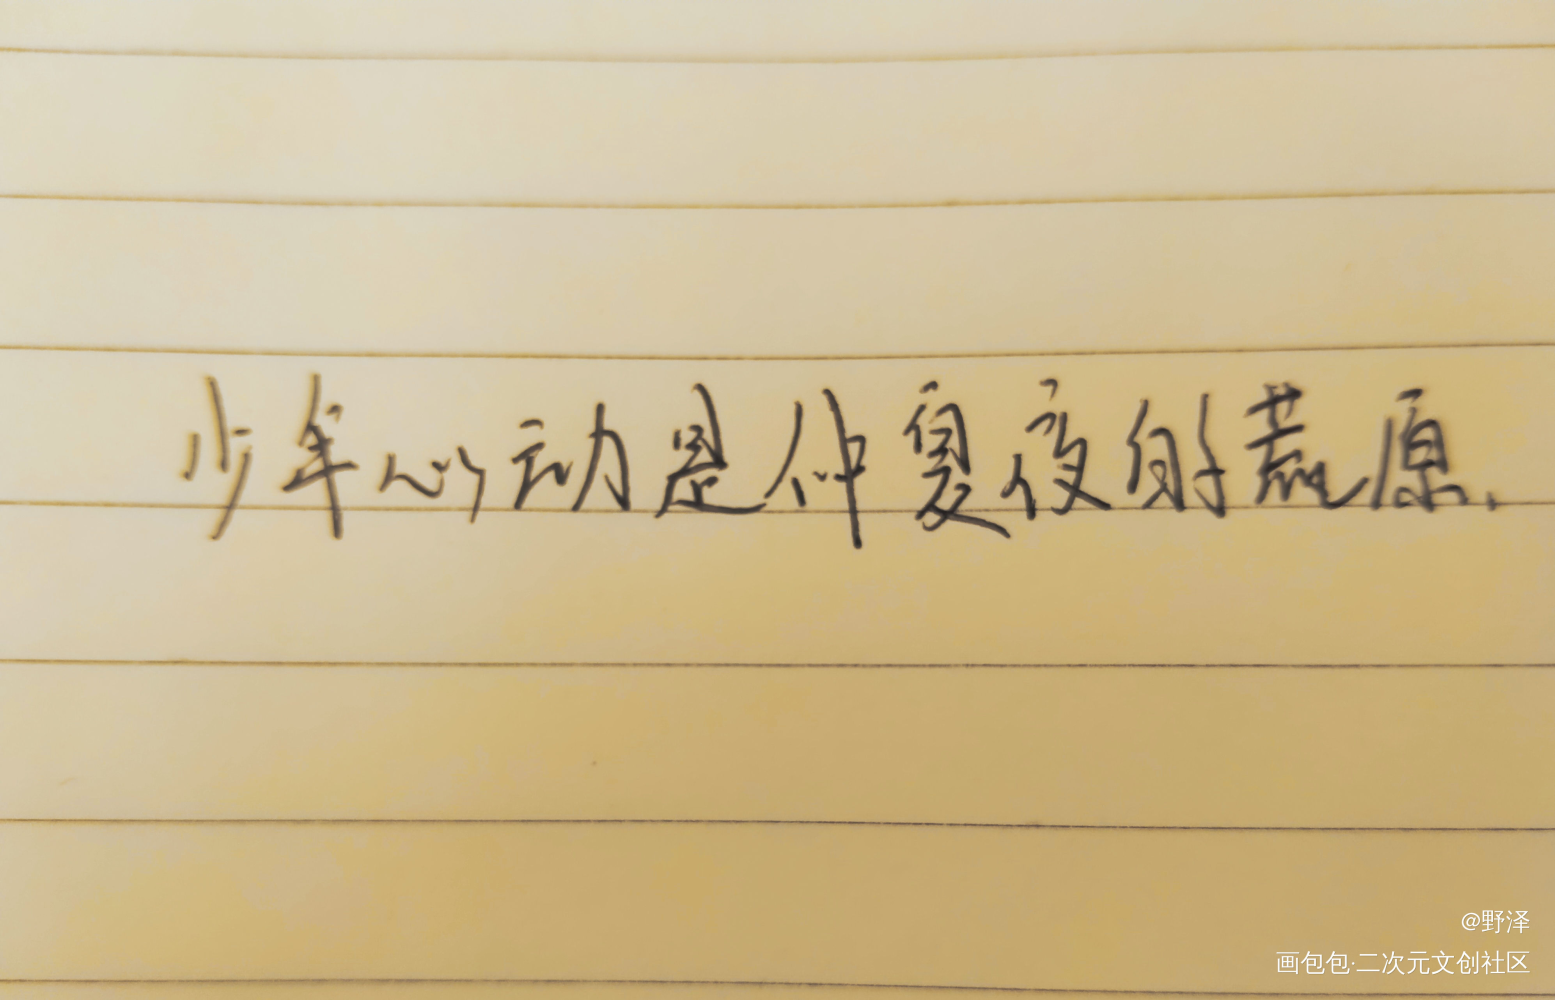 少年心动是仲夏夜的荒原.
@野泽
画包包·二次元文创社区